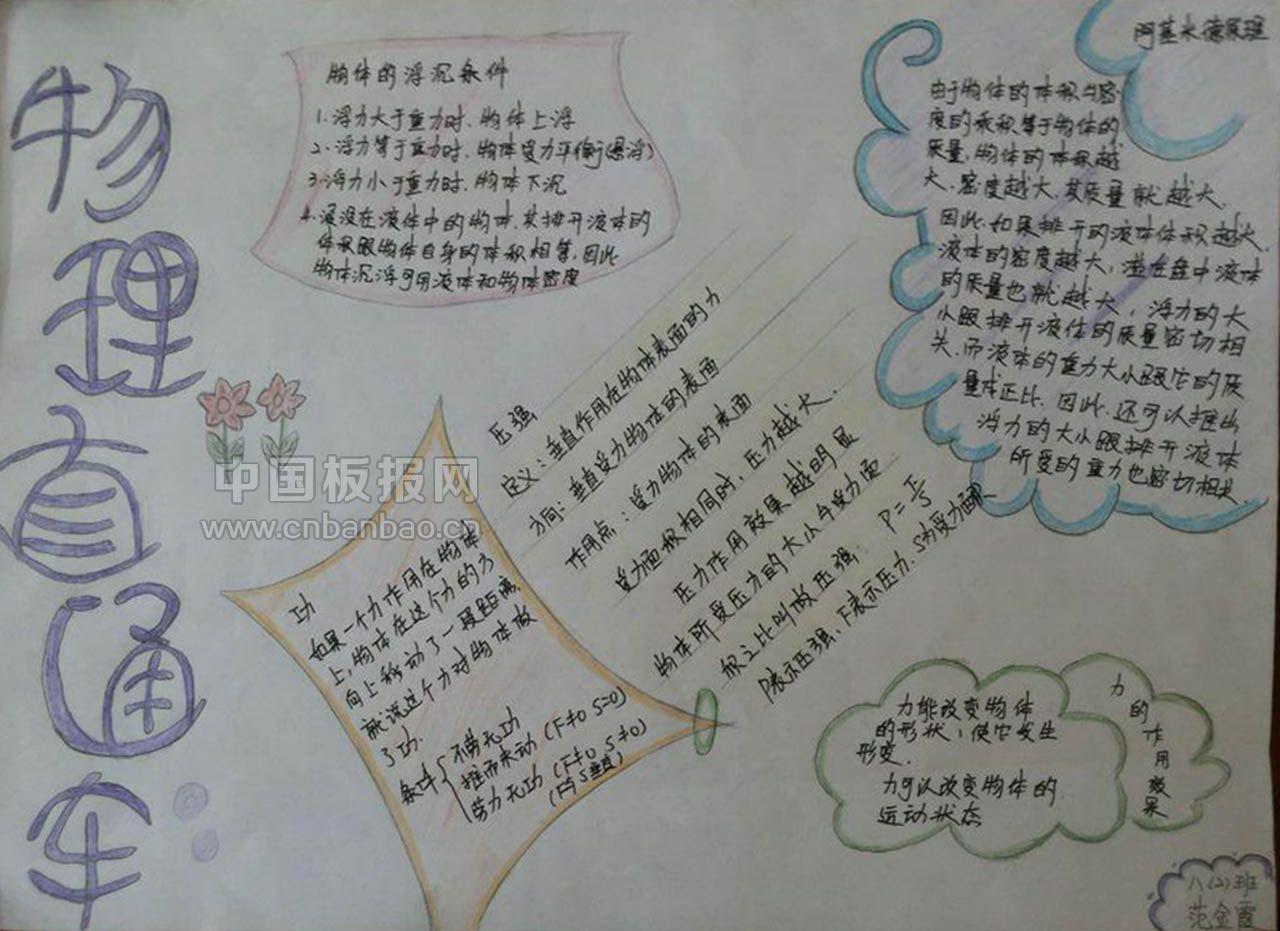 物理直通车
物体的浮沉条件
1.浮力大于重力时.物体上浮
2.浮力等于重力时.物体受力平衡(悬浮)
3.浮力小于重力时.物体下沉
4.浸没在液体中的物体.其排开液体的
体积跟物体自身的体积相等.因此
物体沉浮可用液体和物体密度
阿基米德原理
由于物体的体积与密
度的乘积等于物体的
质量,物体的体积越
大.密度越大.其质量就越大.
因此.如果排开的液体体积越大.
液体的密度越大,溢在盘中液体
的质量也就越大,浮力的大
小跟排开液体的质量密切相
关.而液体的重力大小跟它的质
量成正比.因此.还可以推出
浮力的大小跟排开液体
所受的重力也密切相关
压强
定义:垂直作用在物体表面的力
方向:垂直受力物体的表面
作用点:受力物体的表面
受力面积相同时,压力越大.
压力作用效果越明显
物体所受压力的大小与受力面
积之比叫做压强: P=F/S
P表示压强.F表示压力.S为受力面积
功
如果一个力作用在物体
上,物体在这个力的方
向上移动了一段距离.
就说这个力对物体做
了功.
条件
不劳无功 (F≠0 S=0)
推而未动 (F≠0 S≠0)
劳力无功 (F与S垂直)
力的作用效果
力能改变物体
的形状,使它发生
形变.
力可以改变物体的
运动状态
八(2)班
范金霞
中国板报网
www.cnbanbao.cn